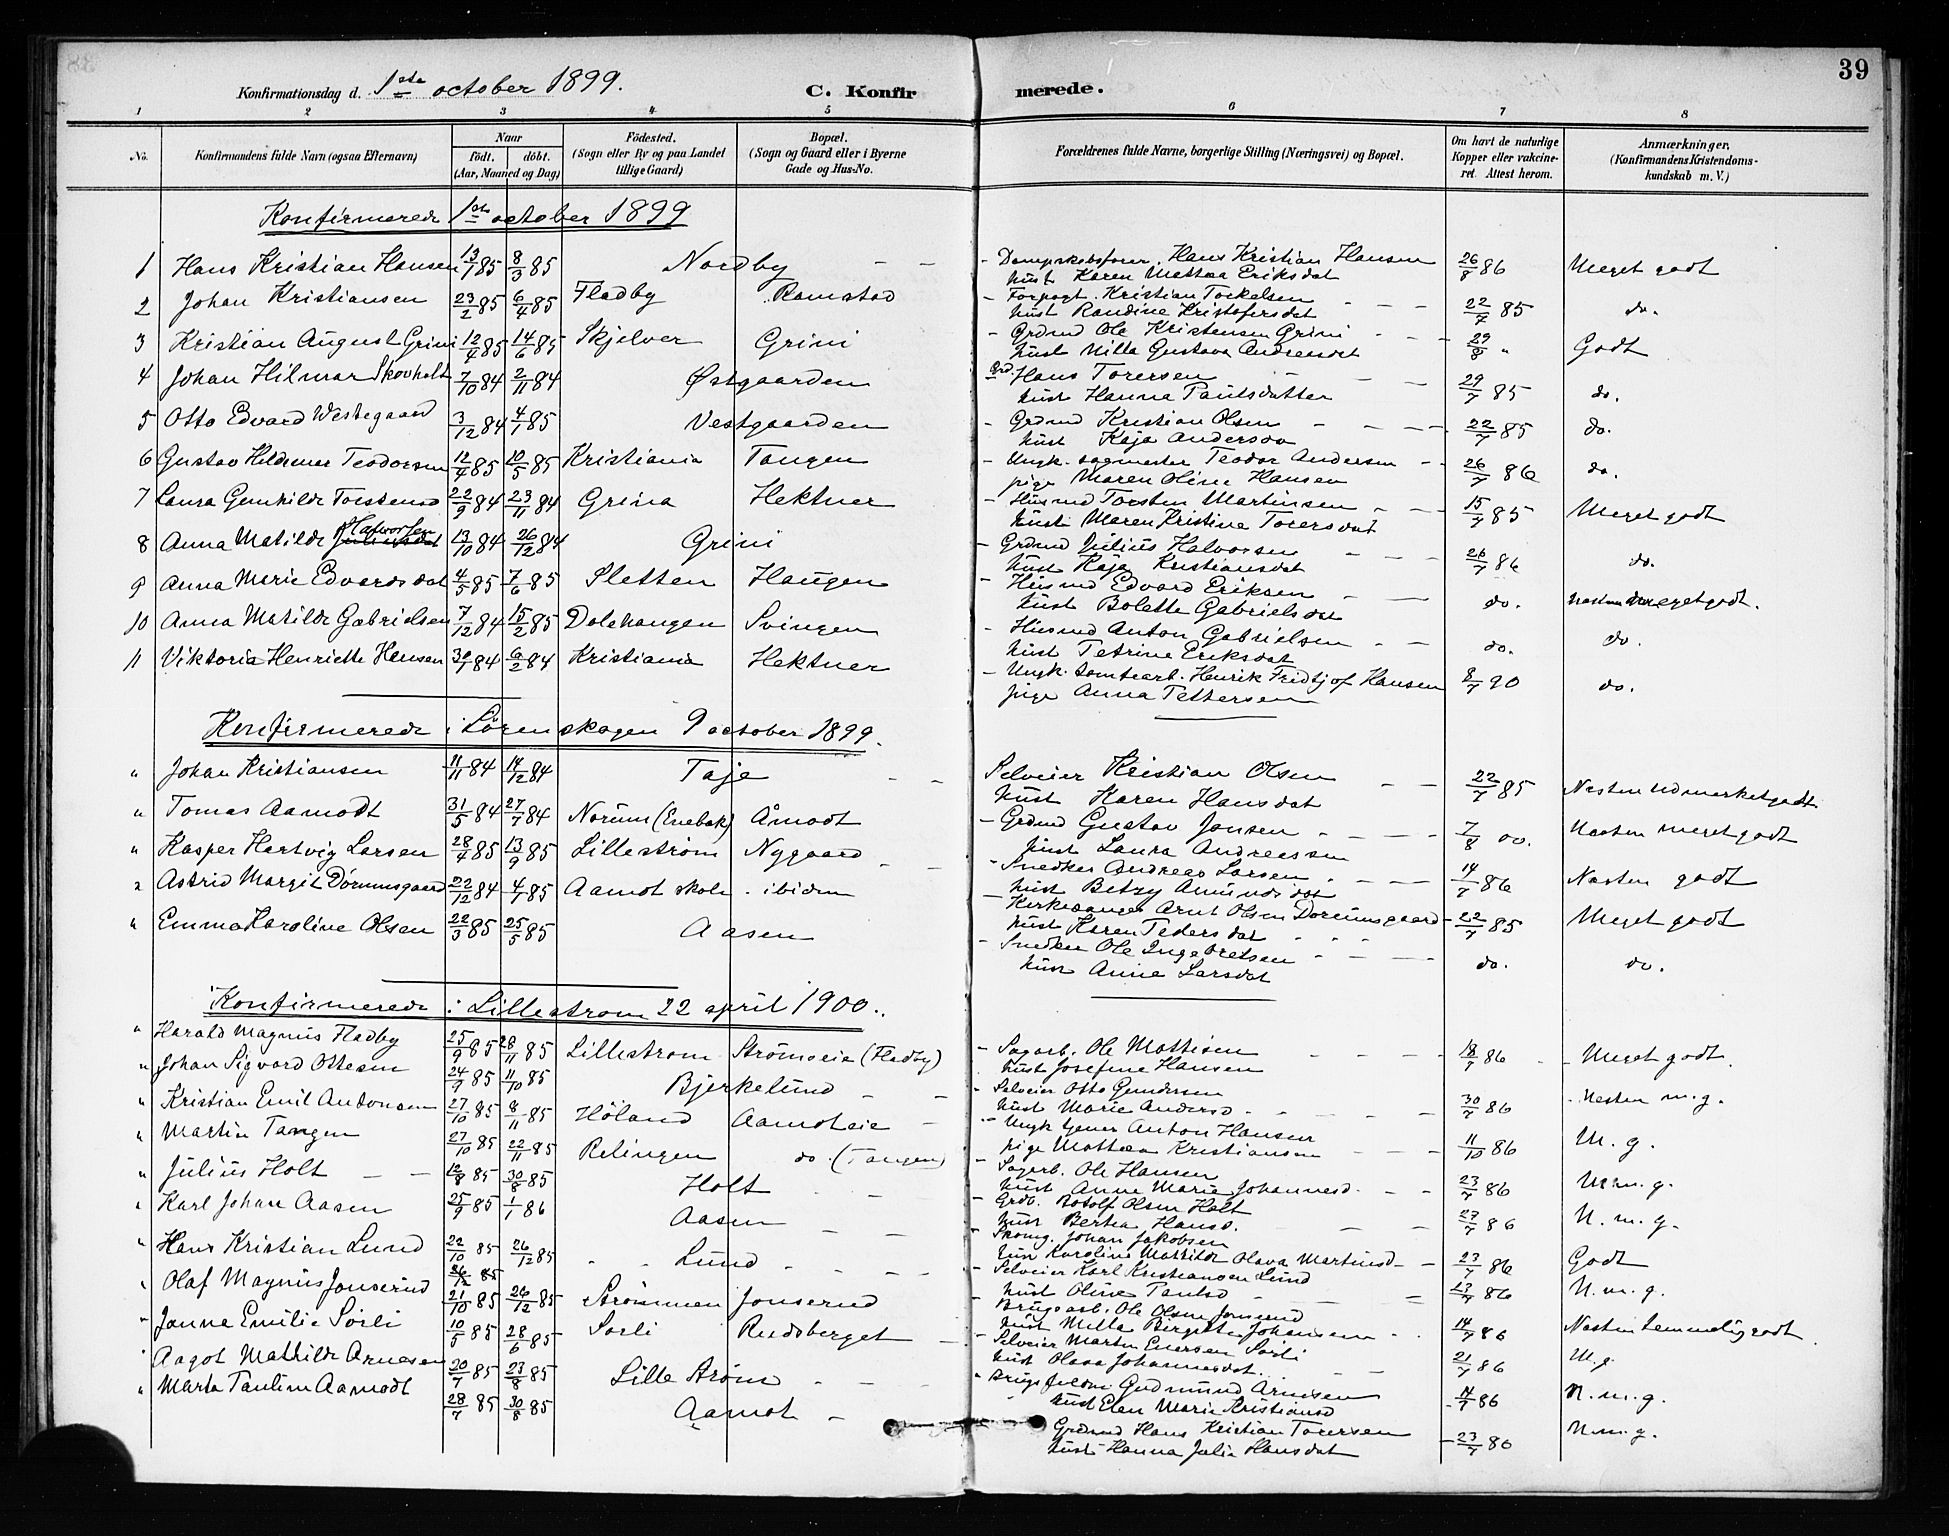 39
Konfirmationsdag d. 1ste october 1899. C. Konfirmerede.
1 2 3 4 5 6 7 8
No. Konfirmandens fulde Navn (ogsaa Efternavn) Naar født. døbt. (Aar, Maaned og Dag) Fødested. (Sogn eller By og paa Landet tillige Gaard) Bopæl. (Sogn og Gaard eller i Byerne Gade og Hus-No. Forældrenes fulde Navne, borgerlige Stilling (Næringsvei) og Bopæl. Om havt de naturlige Kopper eller vakcineret. Attest herom. Anmærkninger. (Konfirmandens Kristendomskundskab m. V.)
Konfirmerede 1ste october 1899
1 Hans Kristian Hansen 13/1 85 8/3 85 Nordby - - - Dampskibsfører Hans Kristian Hansen 26/8 86 Meget godt
hust Karen Mathea Eriksdat
2 Johan Kristiansen 23/2 85 6/4 85 Fladby Ramstad - Forpagt. Kristian Torkelsen 22/7 85 do.
hust Randine Kristofersdat
3 Kristian August Grini 12/4 85 14/6 85 Skjelver Grini - Grdmd Ole Kristensen Grini 29/8 " Godt
hust Milla Gustava Andreasdat
4 Johan Hilmar Skovholt 7/10 84 2/11 84 Østgaarden Grd. Hans Torersen 29/7 85 do.
hust Hanna Paulsdatter
5 Otto Edvard Westegaard 3/12 84 4/1 85 Vestgaarden - Grdmd Kristian Olsen 22/7 85 do.
hust Kaja Andersda
6 Gustav Hildemer Teodorsen 12/4 85 10/5 85 Kristiania Tangen - Ungk. sagmester Teodor Andersen 26/7 86 do.
pige Maren Oline Hansen
7 Laura Gunhilde Torstensd 22/9 84 23/11 84 Grina Hektner - Husmd Torsten Martinsen 15/7 85 Meget godt
hust Maren Kristine Torersdat
8 Anna Matilde Halvorsen 13/10 84 26/12 84 Grini - Grdmd Julius Halvorsen 26/7 86 do.
hust Kaja Kristiansdat
9 Anna Marie Edvardsdat 4/5 85 7/6 85 Sletten Haugen - Husmd Edvard Eriksen do. Næsten meget godt.
hust Bolette Gabrielsdat
10 Anna Matilde Gabrielsen 7/12 84 15/2 85 Dalehaugen Svingen - Husmd Anton Gabrielsen do. do.
hust Petrine Eriksdat
11 Viktoria Henriette Hansen 84 6/2 84 Kristiania Hektner - Ungk. tomtearb. Henrik Fridtjof Hansen 8/7 90 do.
pige Anna Pettersen
Konfirmerede i Lørenskogen 9 october 1899.
" Johan Kristiansen 11/11 84 14/12 84 Taje - - Selveier Kristian Olsen 22/7 85 Næsten udmerket godt
hust Karen Hansdat
" Tomas Aamodt 31/5 84 27/7 84 Norum (Enebak) Åmodt - Grdmd Gustav Jansen 7/8 00. Næsten meget godt
hust Laura Andreassen
" Kasper Hartvig Larsen 28/4 85 13/9 85 Lillestrøm Nygaard - Snedker Andreas Larsen 14/7 86 Næsten godt
hust Betzy Amundsdat
" Astrid Margit Dørumsgaard 22/12 84 4/1 85 Aamot skole ibidem - Kirkesanger Arnt Olsen Dorumsgaard 22/7 85 Meget godt
hust Karen Pedersdat
" Emma Karoline Olsen 22/3 85 25/5 85 Aasen - Snedker Ole Ingebretsen do. do.
hust Anne Larsdat
Konfirmerede i Lillestrøm 22 april 1900.
" Harald Magnus Fladby 25/9 85 28/11 85 Lillestrøm Strømseie (Fladby) - Sagarb. Ole Mattisen 18/7 86 - Meget godt.
hust Josefine Hansen
" Johan Sigvard Ottesen 24/9 85 11/10 85 Bjerkelund - Selveier Otto Gundersen 30/7 86 Næsten m. g.
hust Marie Andersd.
" Kristian Emil Antonsen 27/10 85 8/11 85 Høland Aamoteie - Ungk tjener Anton Hansen 11/10 86 M. g.
pige Mathea Kristiansen
" Martin Tangen 27/10 85 22/11 85 Relingen do. (Tangen) - Sagarb. Ole Hansen 23/7 86 N. m. g.
hust Anne Marie Johannesd.
" Julius Holt 85 30/8 85 Holt - Grdb. Rotolf Olsen Holt 27/7 86 N. m. g.
hust Berthea Hansd.
" Karl Johan Aasen 25/9 85 1/1 86 Aasen Skomg. Johan Jakobsen 23/7 86 Godt
hust Karoline Mathilde Olava Martinsd
" Hans Kristian Lund 22/10 85 26/12 85 Lund - Selveier Karl Kristiansen Lund 23/7 86 N. m. g.
26/12 85 hust Oline Paulsd
" Olaf Magnus Jonserud 21/10 85 26/12 85 Strømmen Jonserud Brugsarb. Ole Olsen Jonserud 14/7 86 Næsten temmelig godt.
hust Milla Birgitte Johansen
" Janna Emilie Sørli 10/5 85 28/6 85 Sørli Rudsberget - Selveier Martin Evensen Sørli 21/7 86 M. g.
hust Olava Johannesdat.
" Aagot Mathilde Arnesen 20/7 85 23/8 85 Lille Strøm - Brugsfuldm Gudmund Arnesen 14/7 86 N. m. g.
hust Elen Marie Kristiansd
" Marta Pauline Aamodt 28/7 85 30/8 85 Aamot - Grdmd Hans Kristian Torersen 23/7 86 N. m. g.
hust Hanna Julie Hansdat